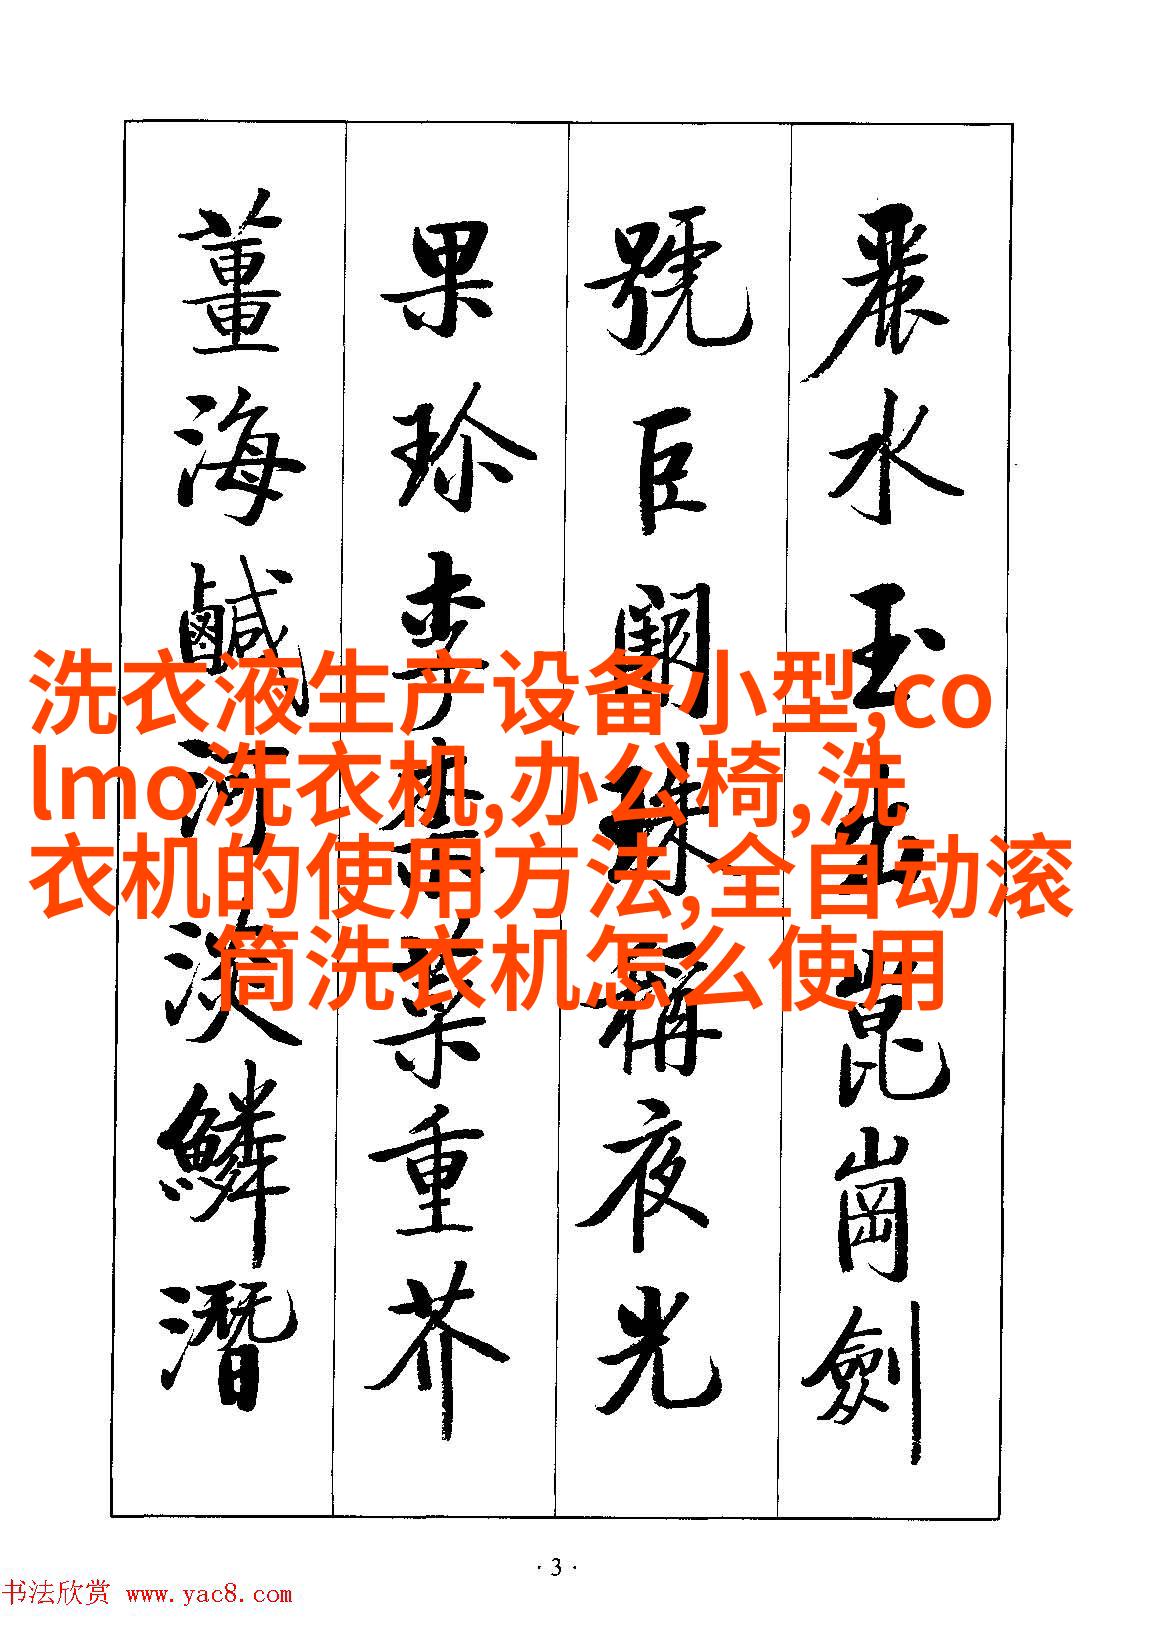 麗水玉出崑崗劍
號巨闕珠稱夜光
果珍李柰菜重芥
薑海鹹河淡鱗潛
洗衣液生产设备小型,co
lmo洗衣机,办公椅,洗
衣机的使用方法,全自动滚
筒洗衣机怎么使用
·3·
书法欣赏 www.yac8.com